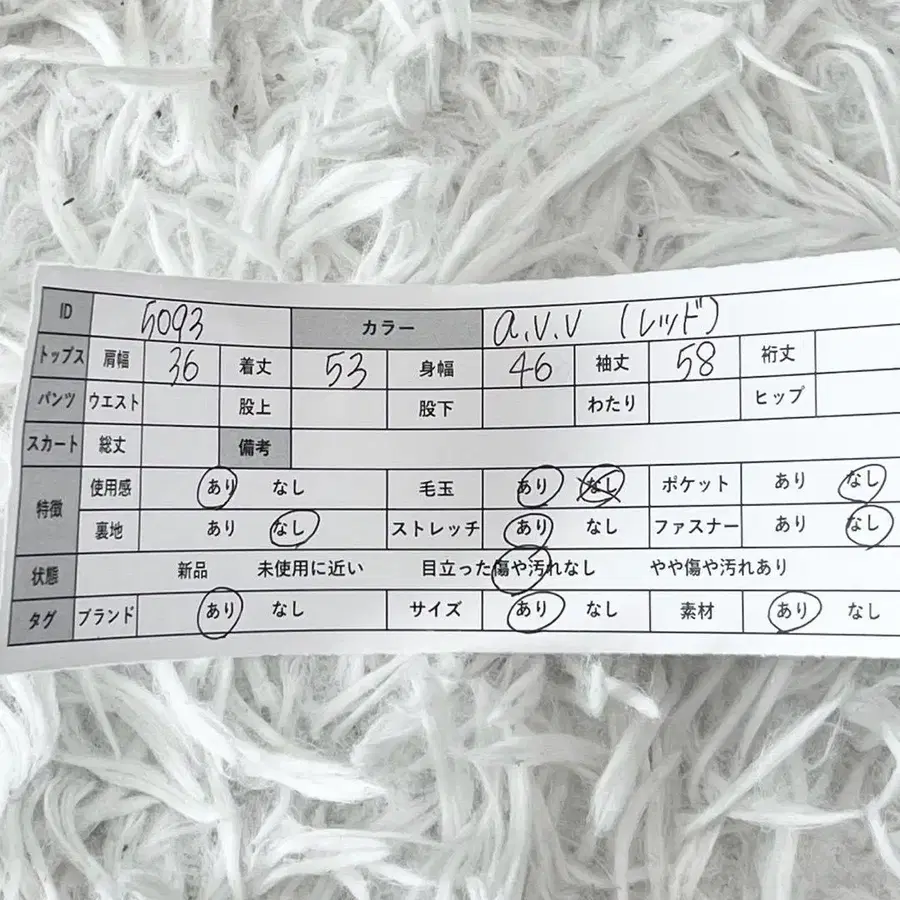 ID 5093 カラー a.v.v (レッド)
トップス 肩幅 36 着丈 53 身幅 46 袖丈 58 裄丈
パンツ ウエスト 股上 股下 わたり ヒップ
スカート 総丈 備考
特徴 使用感 あり なし 毛玉 あり なし ポケット あり なし
裏地 あり なし ストレッチ あり なし ファスナー あり なし
状態 新品 未使用に近い 目立った傷や汚れなし やや傷や汚れあり
タグ ブランド あり なし サイズ あり なし 素材 あり なし